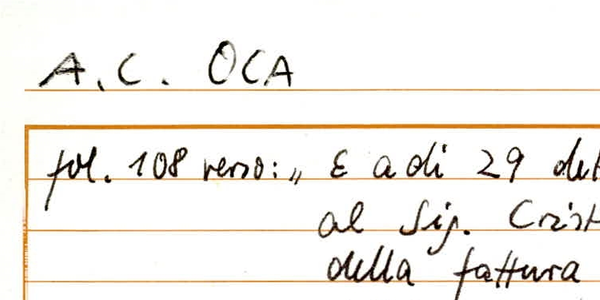 A.C. OCA
fol. 108 verso: „ E adi 29
al Sig.
della fattura